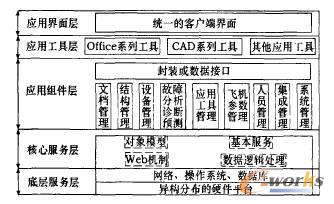 应用界面层
统一的客户端界面
应用工具层
Office系列工具
CAD系列工具
其他应用工具
应用组件层
封装或数据接口
文档管理
结构管理
设备管理
故障分析诊断预测
应用工具管理
飞机参数管理
人员管理
集成管理
系统管理
核心服务层
对象模型
基本服务
Web机制
数据逻辑处理
底层服务层
网络、操作系统、数据库
异构分布的硬件平台